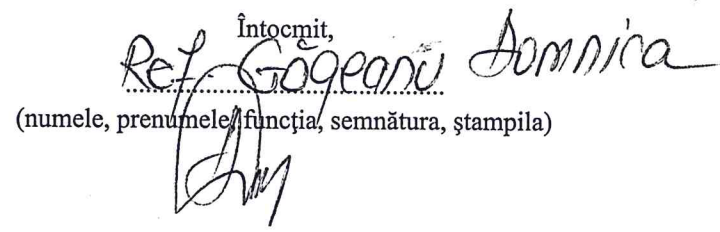 Întocmit,
Ref. Găgeanu Domnica
(numele, prenumele, funcţia, semnătura, ştampila)